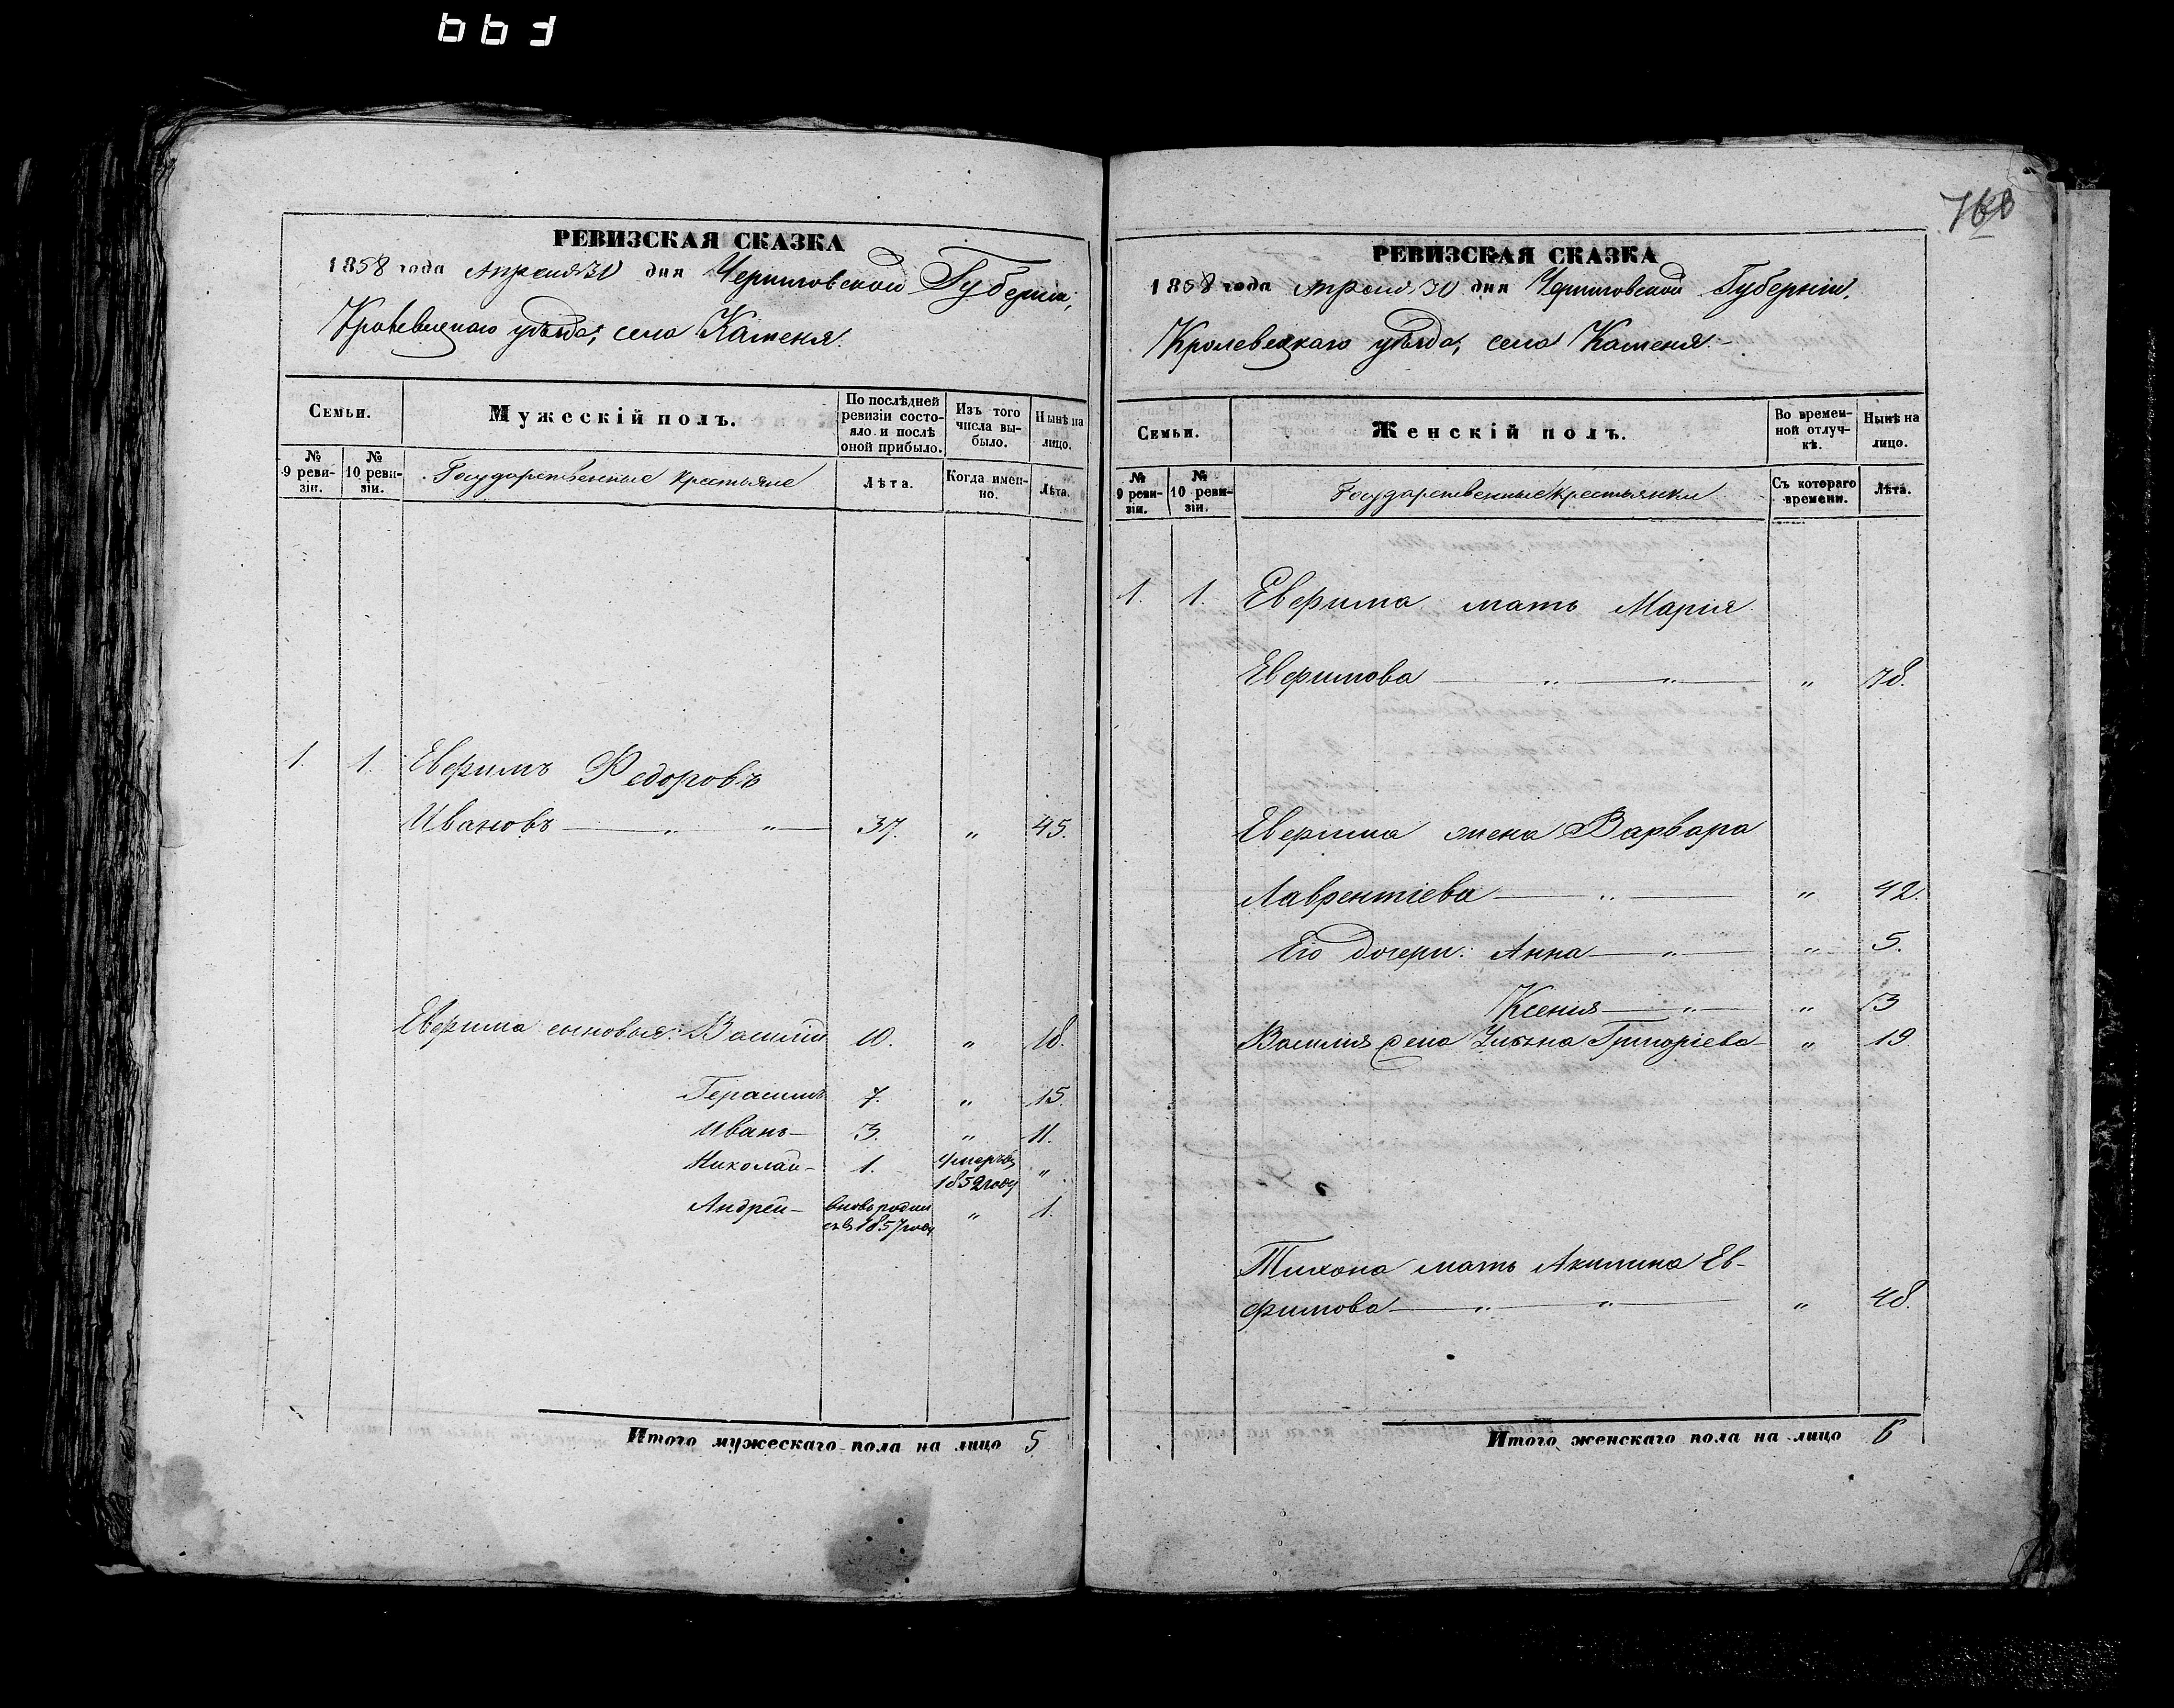 663
РЕВИЗСКАЯ СКАЗКА
1858 года Апреля 30 дня Черниговской Губерніи,
Кролевецкаго уѣзда, села Каменя.
Семьи.
Мужескій полъ.
По послѣдней ревизіи состояло и послѣ оной прибыло.
Изъ того числа выбыло.
Нынѣ на лицо.
№ 9 ревизіи.
№ 10 ревизіи.
Государственные крестьяне
Лѣта.
Когда именно.
Лѣта.
1. 1. Евфимъ Федоровъ
Ивановъ — „ „ — 37. „ 45.
Евфима сыновья: Василій 10. „ 18.
Герасимъ 7. „ 15.
Иванъ — 3. „ 11.
Николай — 1. умеръ въ 1852 году „
Андрей — вновь родился въ 1857 году „ 1.
Итого мужескаго пола на лицо 5.
768
РЕВИЗСКАЯ СКАЗКА
1858 года Апреля 30 дня Черниговской Губерніи,
Кролевецкаго уѣзда, села Каменя.
Семьи.
Женскій полъ.
Во временной отлучкѣ.
Нынѣ на лицо.
№ 9 ревизіи.
№ 10 ревизіи.
Государственные крестьянки
Съ котораго времени.
Лѣта.
1. 1. Евфима мать Марія
Евфимова — „ — „ — „ 78.
Евфима жена Варвара
Лаврентіева — „ — „ 42.
Его дочери: Анна — „ — „ 5.
Ксенія — „ — „ 3
Василія жена Ульяна Григоріева — „ 19.
Тихона мать Акилина Ев-
фимова — „ — „ — „ 48.
Итого женскаго пола на лицо 6